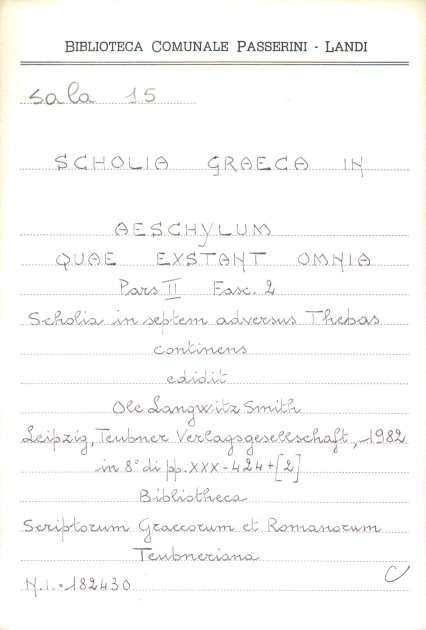 BIBLIOTECA COMUNALE PASSERINI - LANDI
Sala 15
SCHOLIA GRAECA IN
AESCHYLUM
QUAE EXSTANT OMNIA
Pars II Fasc. 2
Scholia in septem adversus Thebas
continens
edidit
Ole Langwitz Smith
Leipzig, Teubner Verlagsgesellschaft, 1982
in 8° di pp. XXX-424+[2]
Bibliotheca
Scriptorum Graecorum et Romanorum
Teubneriana
N.I.=182430
C